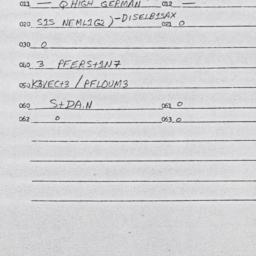 011 — QHIGH GERMAN 012 —
020 S1S NEML1G2)-DISELB1SAX 021 0
030 0
040 3 PFERS+1N7
050 K3VEC+3 / PFLOUM3
060 S+DA.N 061 0
062 0 063 0